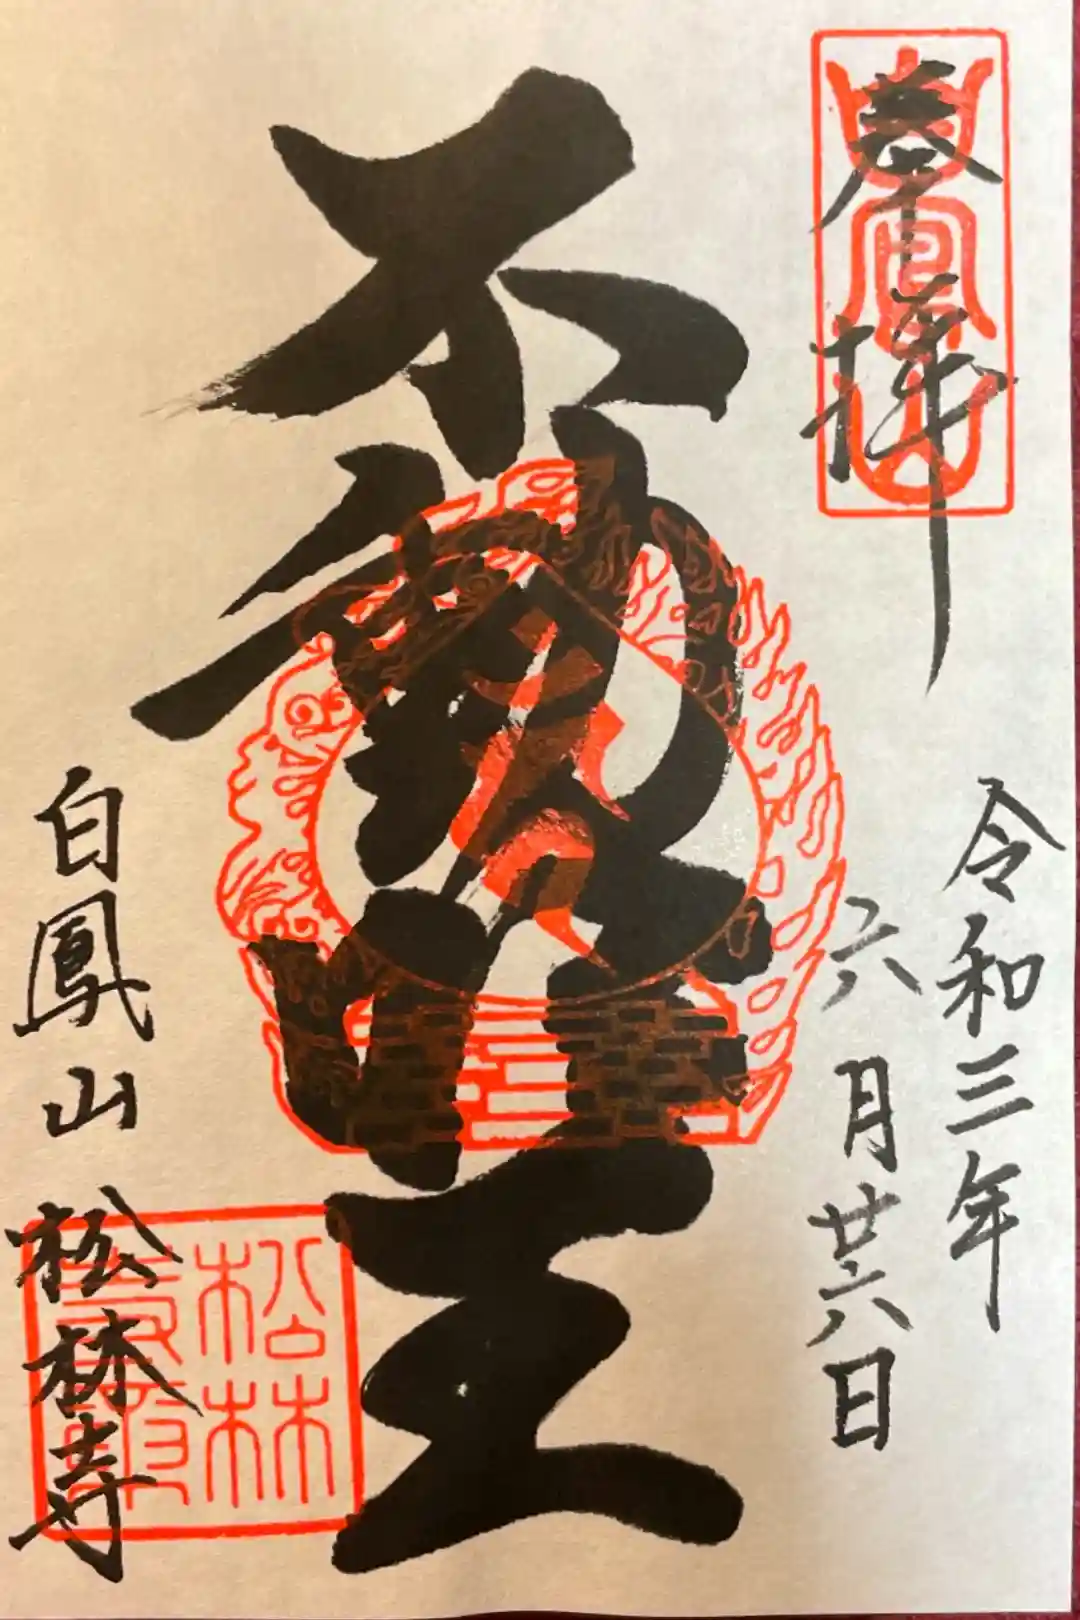 奉拝
令和三年
六月廿六日
不動明王
白鳳山 松林寺
白鳳山
松林